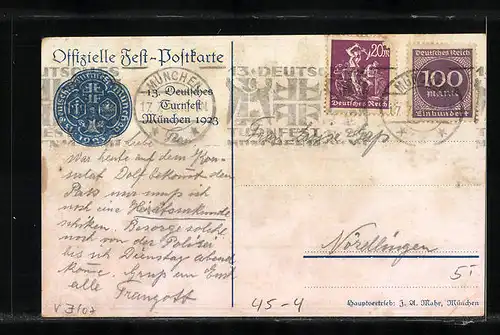 Offizielle Fest-Postkarte
13. Deutsches
Turnfest
München 1923
MÜNCHEN
13. DEUTSCHES
20 m
Deutsches Reich
Deutsches Reich
100
mark
Einhundert
liebe
War heute auf dem Kon-
sulat Dolf bekommt den
Pass uns muss ich
noch eine Heiratsurkunde
schiken. Besorge solche
noch von der Polizei
bis ich Dienstag abend
komme. Gruss an Euch
alle Traugott
Nördlingen
5.
45-4
Hauptvertrieb: J. A. Mahr, München